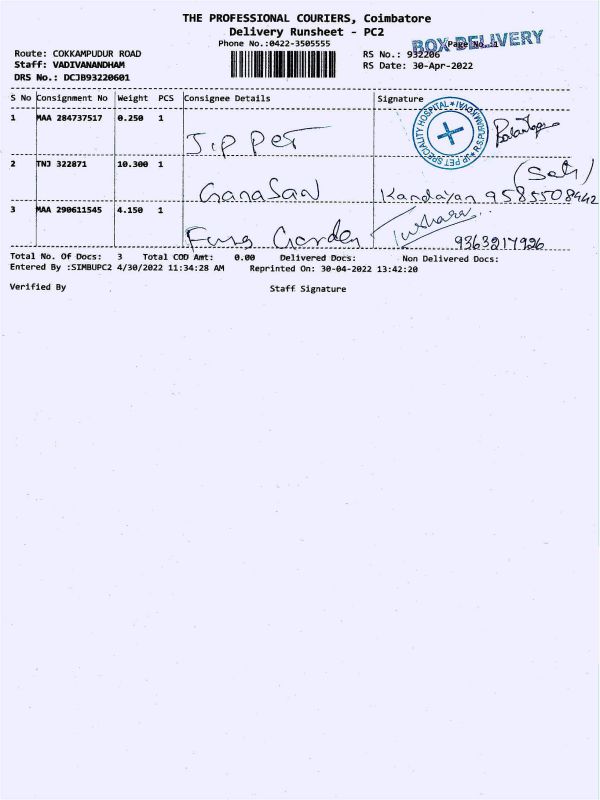 THE PROFESSIONAL COURIERS, Coimbatore
Delivery Runsheet - PC2
Phone No.:0422-3505555
BOX DELIVERY
Page No. 1
Route: COKKAMPUDUR ROAD
RS No.: 932206
Staff: VADIVANANDHAM
RS Date: 30-Apr-2022
DRS No.: DCJB93220601
S No Consignment No Weight PCS Consignee Details Signature
1 MAA 284737517 0.250 1
J.P PET
JP PET SPECIALITY HOSPITAL
2 TNJ 322871 10.300 1
GanaSan Kandayan 9585508442
3 MAA 290611545 4.150 1
Garden Tushara 9363217926
Total No. Of Docs: 3 Total COD Amt: 0.00 Delivered Docs: Non Delivered Docs:
Entered By :SIMBUPC2 4/30/2022 11:34:28 AM Reprinted On: 30-04-2022 13:42:20
Verified By Staff Signature